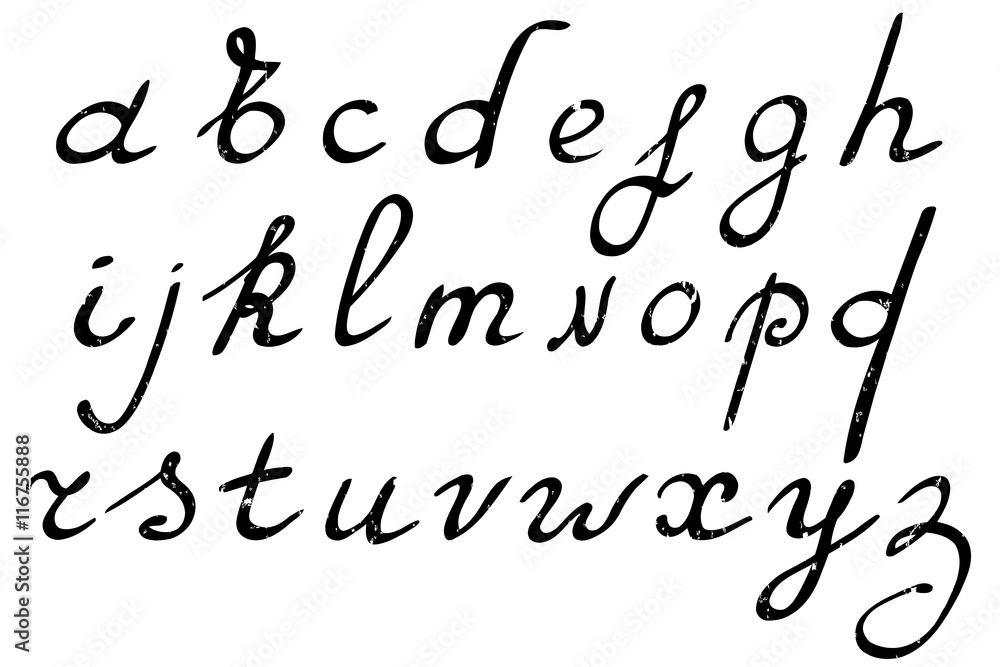 a b c d e f g h
i j k l m n o p q
r s t u v w x y z
Adobe Stock | #116755888